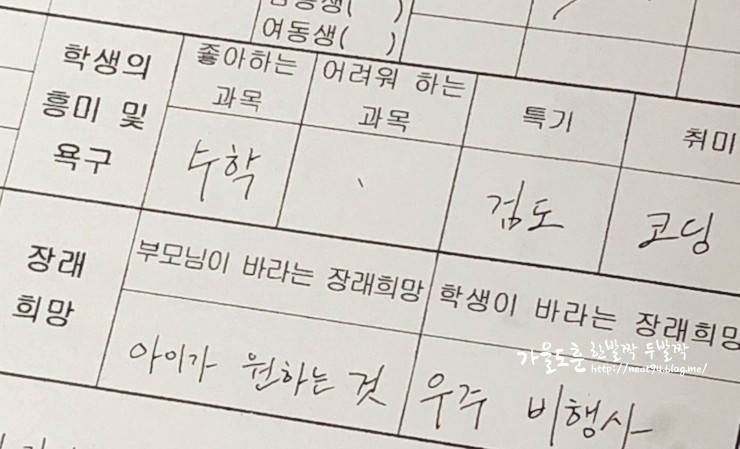 남동생( )
여동생( )
학생의 흥미 및 욕구
좋아하는 과목
어려워 하는 과목
특기
취미
수학
검도
코딩
장래 희망
부모님이 바라는 장래희망
학생이 바라는 장래희망
아이가 원하는 것
우주 비행사
가을도훈 한발짝 두발짝
http://neat94.blog.me/